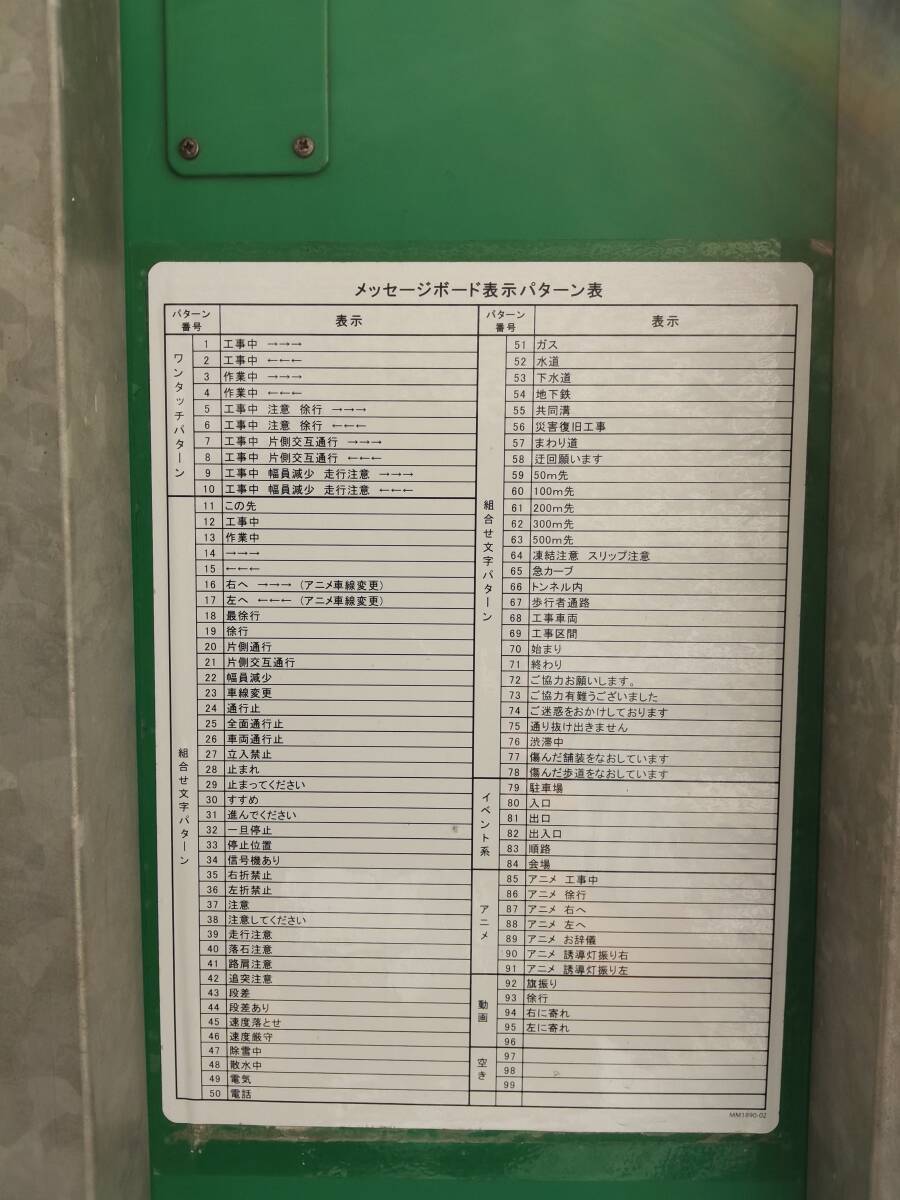 メッセージボード表示パターン表
パターン番号 表示
ワンタッチパターン
1 工事中 →→→
2 工事中 ←←←
3 作業中 →→→
4 作業中 ←←←
5 工事中 注意 徐行 →→→
6 工事中 注意 徐行 ←←←
7 工事中 片側交互通行 →→→
8 工事中 片側交互通行 ←←←
9 工事中 幅員減少 走行注意 →→→
10 工事中 幅員減少 走行注意 ←←←
組合せ文字パターン
11 この先
12 工事中
13 作業中
14 →→→
15 ←←←
16 右へ →→→（アニメ車線変更）
17 左へ ←←←（アニメ車線変更）
18 最徐行
19 徐行
20 片側通行
21 片側交互通行
22 幅員減少
23 車線変更
24 通行止
25 全面通行止
26 車両通行止
27 立入禁止
28 止まれ
29 止まってください
30 すすめ
31 進んでください
32 一旦停止
33 停止位置
34 信号機あり
35 右折禁止
36 左折禁止
37 注意
38 注意してください
39 走行注意
40 落石注意
41 路肩注意
42 追突注意
43 段差
44 段差あり
45 速度落とせ
46 速度厳守
47 除雪中
48 散水中
49 電気
50 電話
パターン番号 表示
組合せ文字パターン
51 ガス
52 水道
53 下水道
54 地下鉄
55 共同溝
56 災害復旧工事
57 まわり道
58 迂回願います
59 50m先
60 100m先
61 200m先
62 300m先
63 500m先
64 凍結注意 スリップ注意
65 急カーブ
66 トンネル内
67 歩行者通路
68 工事車両
69 工事区間
70 始まり
71 終わり
72 ご協力お願いします。
73 ご協力有難うございました
74 ご迷惑をおかけしております
75 通り抜け出きません
76 渋滞中
77 傷んだ舗装をなおしています
78 傷んだ歩道をなおしています
イベント系
79 駐車場
80 入口
81 出口
82 出入口
83 順路
84 会場
アニメ
85 アニメ 工事中
86 アニメ 徐行
87 アニメ 右へ
88 アニメ 左へ
89 アニメ お辞儀
90 アニメ 誘導灯振り右
91 アニメ 誘導灯振り左
動画
92 旗振り
93 徐行
94 右に寄れ
95 左に寄れ
96
空き
97
98
99
MM1890-02